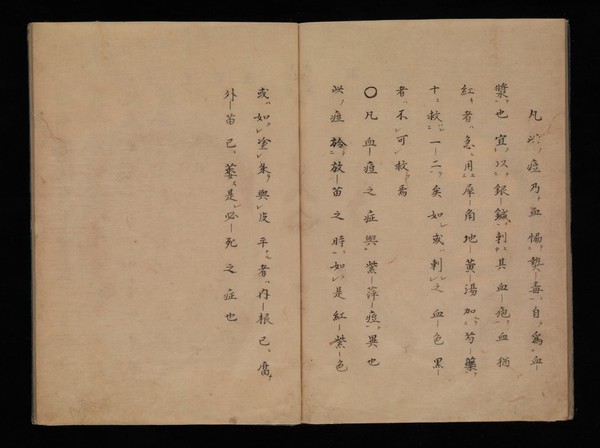 凡此痘乃血惕熱毒自為血
漿也宜以銀鍼刺其血疱血猶
紅者急用犀角地黄湯加芍藥
十救一二矣如或刺之血色黒
者不可救焉
〇凡血痘之症與紫萍痘異也
此痘於放苗之時如是紅紫色
或如塗朱與皮平者内根已腐
外苗已萎是必死之症也